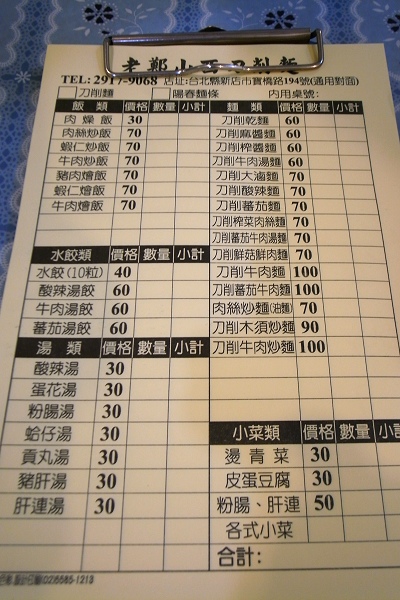 老鄭山西刀削麵
TEL: 2917-9068 店址:台北縣新店市寶橋路194號(通用對面)
刀削麵 陽春麵條 內用桌號:
飯類 價格 數量 小計
肉燥飯 30
肉絲炒飯 70
蝦仁炒飯 70
牛肉炒飯 70
豬肉燴飯 70
蝦仁燴飯 70
牛肉燴飯 70
水餃類 價格 數量 小計
水餃(10粒) 40
酸辣湯餃 60
牛肉湯餃 60
蕃茄湯餃 60
湯類 價格 數量 小計
酸辣湯 30
蛋花湯 30
粉腸湯 30
蛤仔湯 30
貢丸湯 30
豬肝湯 30
肝連湯 30
麵類 價格 數量 小計
刀削乾麵 60
刀削麻醬麵 60
刀削榨醬麵 60
刀削牛肉湯麵 60
刀削大滷麵 70
刀削酸辣麵 70
刀削蕃茄麵 70
刀削榨菜肉絲麵 70
刀削蕃茄牛肉湯麵 70
刀削鮮菇鮮肉麵 70
刀削牛肉麵 100
刀削蕃茄牛肉麵 100
肉絲炒麵(油麵) 70
刀削木須炒麵 90
刀削牛肉炒麵 100
小菜類 價格 數量 小計
燙青菜 30
皮蛋豆腐 30
粉腸、肝連 50
各式小菜
合計:
(02)8585-1213